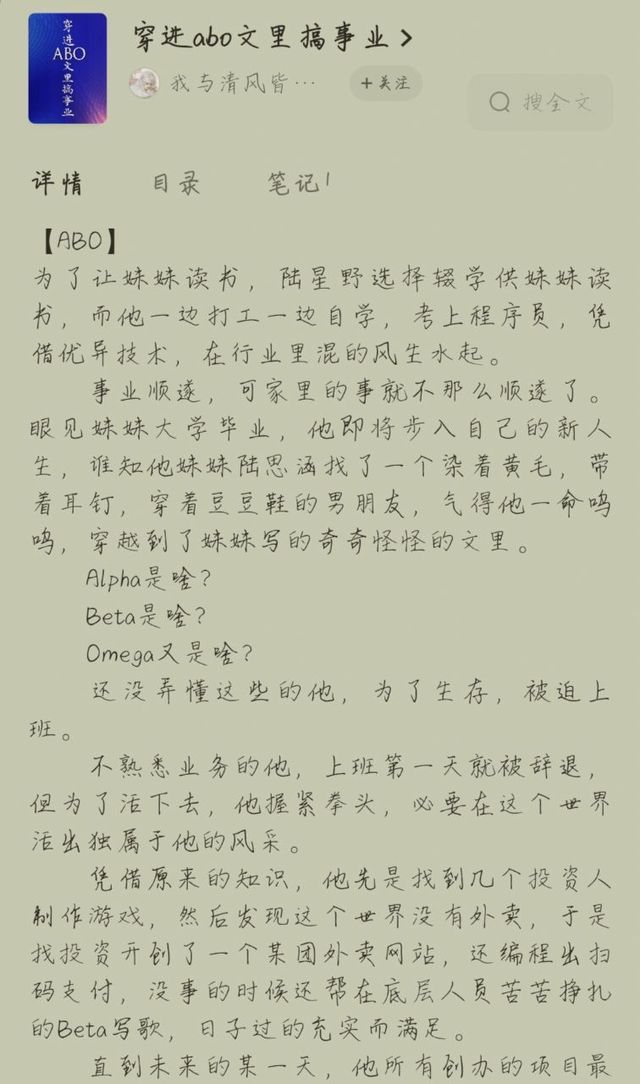 穿进
ABO
文里
搞事业
穿进abo文里搞事业 >
我与清风皆…
+关注
搜全文
详情
目录
笔记1
【ABO】
为了让妹妹读书，陆星野选择辍学供妹妹读
书，而他一边打工一边自学，考上程序员，凭
借优异技术，在行业里混的风生水起。
事业顺遂，可家里的事就不那么顺遂了。
眼见妹妹大学毕业，他即将步入自己的新人
生，谁知他妹妹陆思涵找了一个染着黄毛，带
着耳钉，穿着豆豆鞋的男朋友，气得他一命呜
呜，穿越到了妹妹写的奇奇怪怪的文里。
Alpha是啥？
Beta是啥？
Omega又是啥？
还没弄懂这些的他，为了生存，被迫上
班。
不熟悉业务的他，上班第一天就被辞退，
但为了活下去，他握紧拳头，必要在这个世界
活出独属于他的风采。
凭借原来的知识，他先是找到几个投资人
制作游戏，然后发现这个世界没有外卖，于是
找投资开创了一个某团外卖网站，还编程出扫
码支付，没事的时候还帮在底层人员苦苦挣扎
的Beta写歌，日子过的充实而满足。
直到未来的某一天，他所有创办的项目最